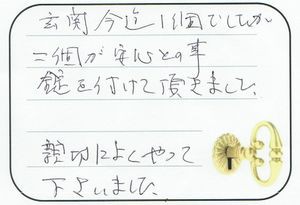 玄関今迄1個でしたが
二個が安心との事
鍵を付けて頂きました、
親切によくやって
下さいました、